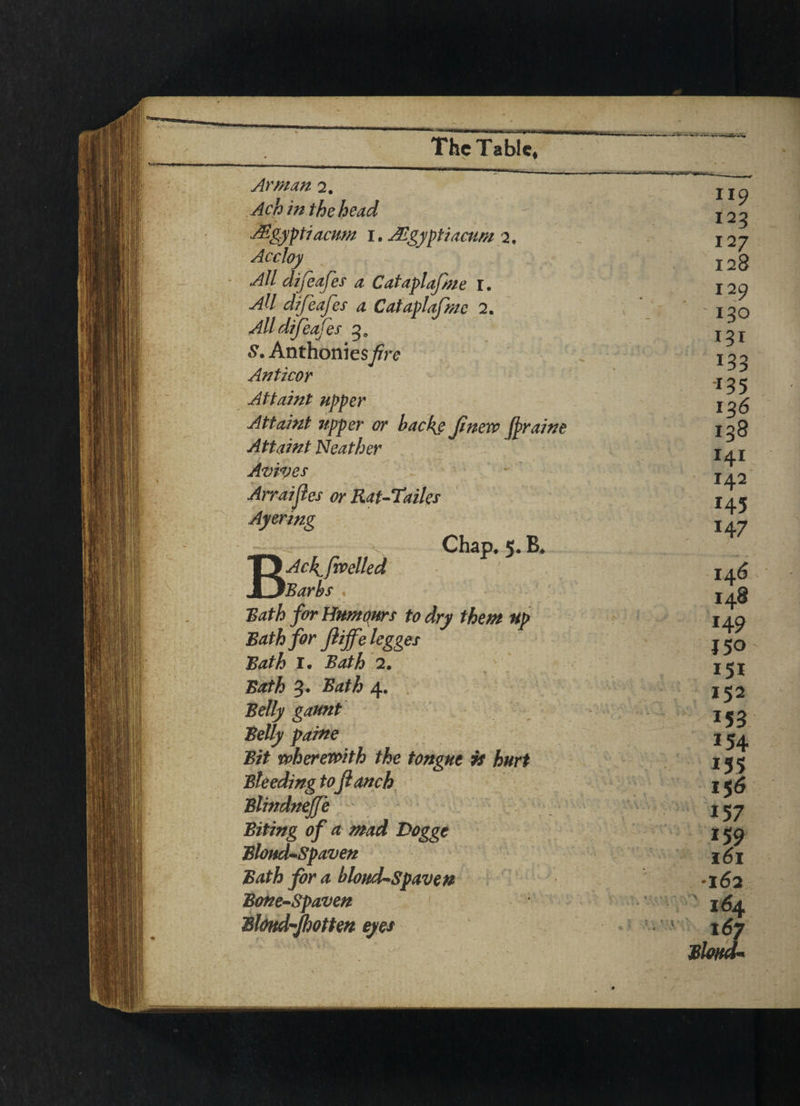 The Table,
Arman 2. 119
Ach in the head 123
Ægyptiacum 1. Ægyptiacum 2. 127
Accloy 128
All diſeaſes a Cataplaſme 1. 129
All diſeaſes a Cataplaſme 2. 130
All diſeaſes 3. 131
S. Anthonies fire 133
Anticor 135
Attaint upper 136
Attaint upper or backe ſinew ſpraine 138
Attaint Neather 141
Avives 142
Arraiſtes or Rat-Tailes 145
Ayering 147
Chap. 5. B.
BAck ſwelled 146
Barbs 148
Bath for Humours to dry them up 149
Bath for ſtiffe legges 150
Bath 1. Bath 2. 151
Bath 3. Bath 4. 152
Belly gaunt 153
Belly paine 154
Bit wherewith the tongue is hurt 155
Bleeding to ſtanch 156
Blindneſſe 157
Biting of a mad Dogge 159
Bloud-Spaven 161
Bath for a bloud-Spaven 162
Bone-Spaven 164
Bloud-ſhotten eyes 167
Bloud-